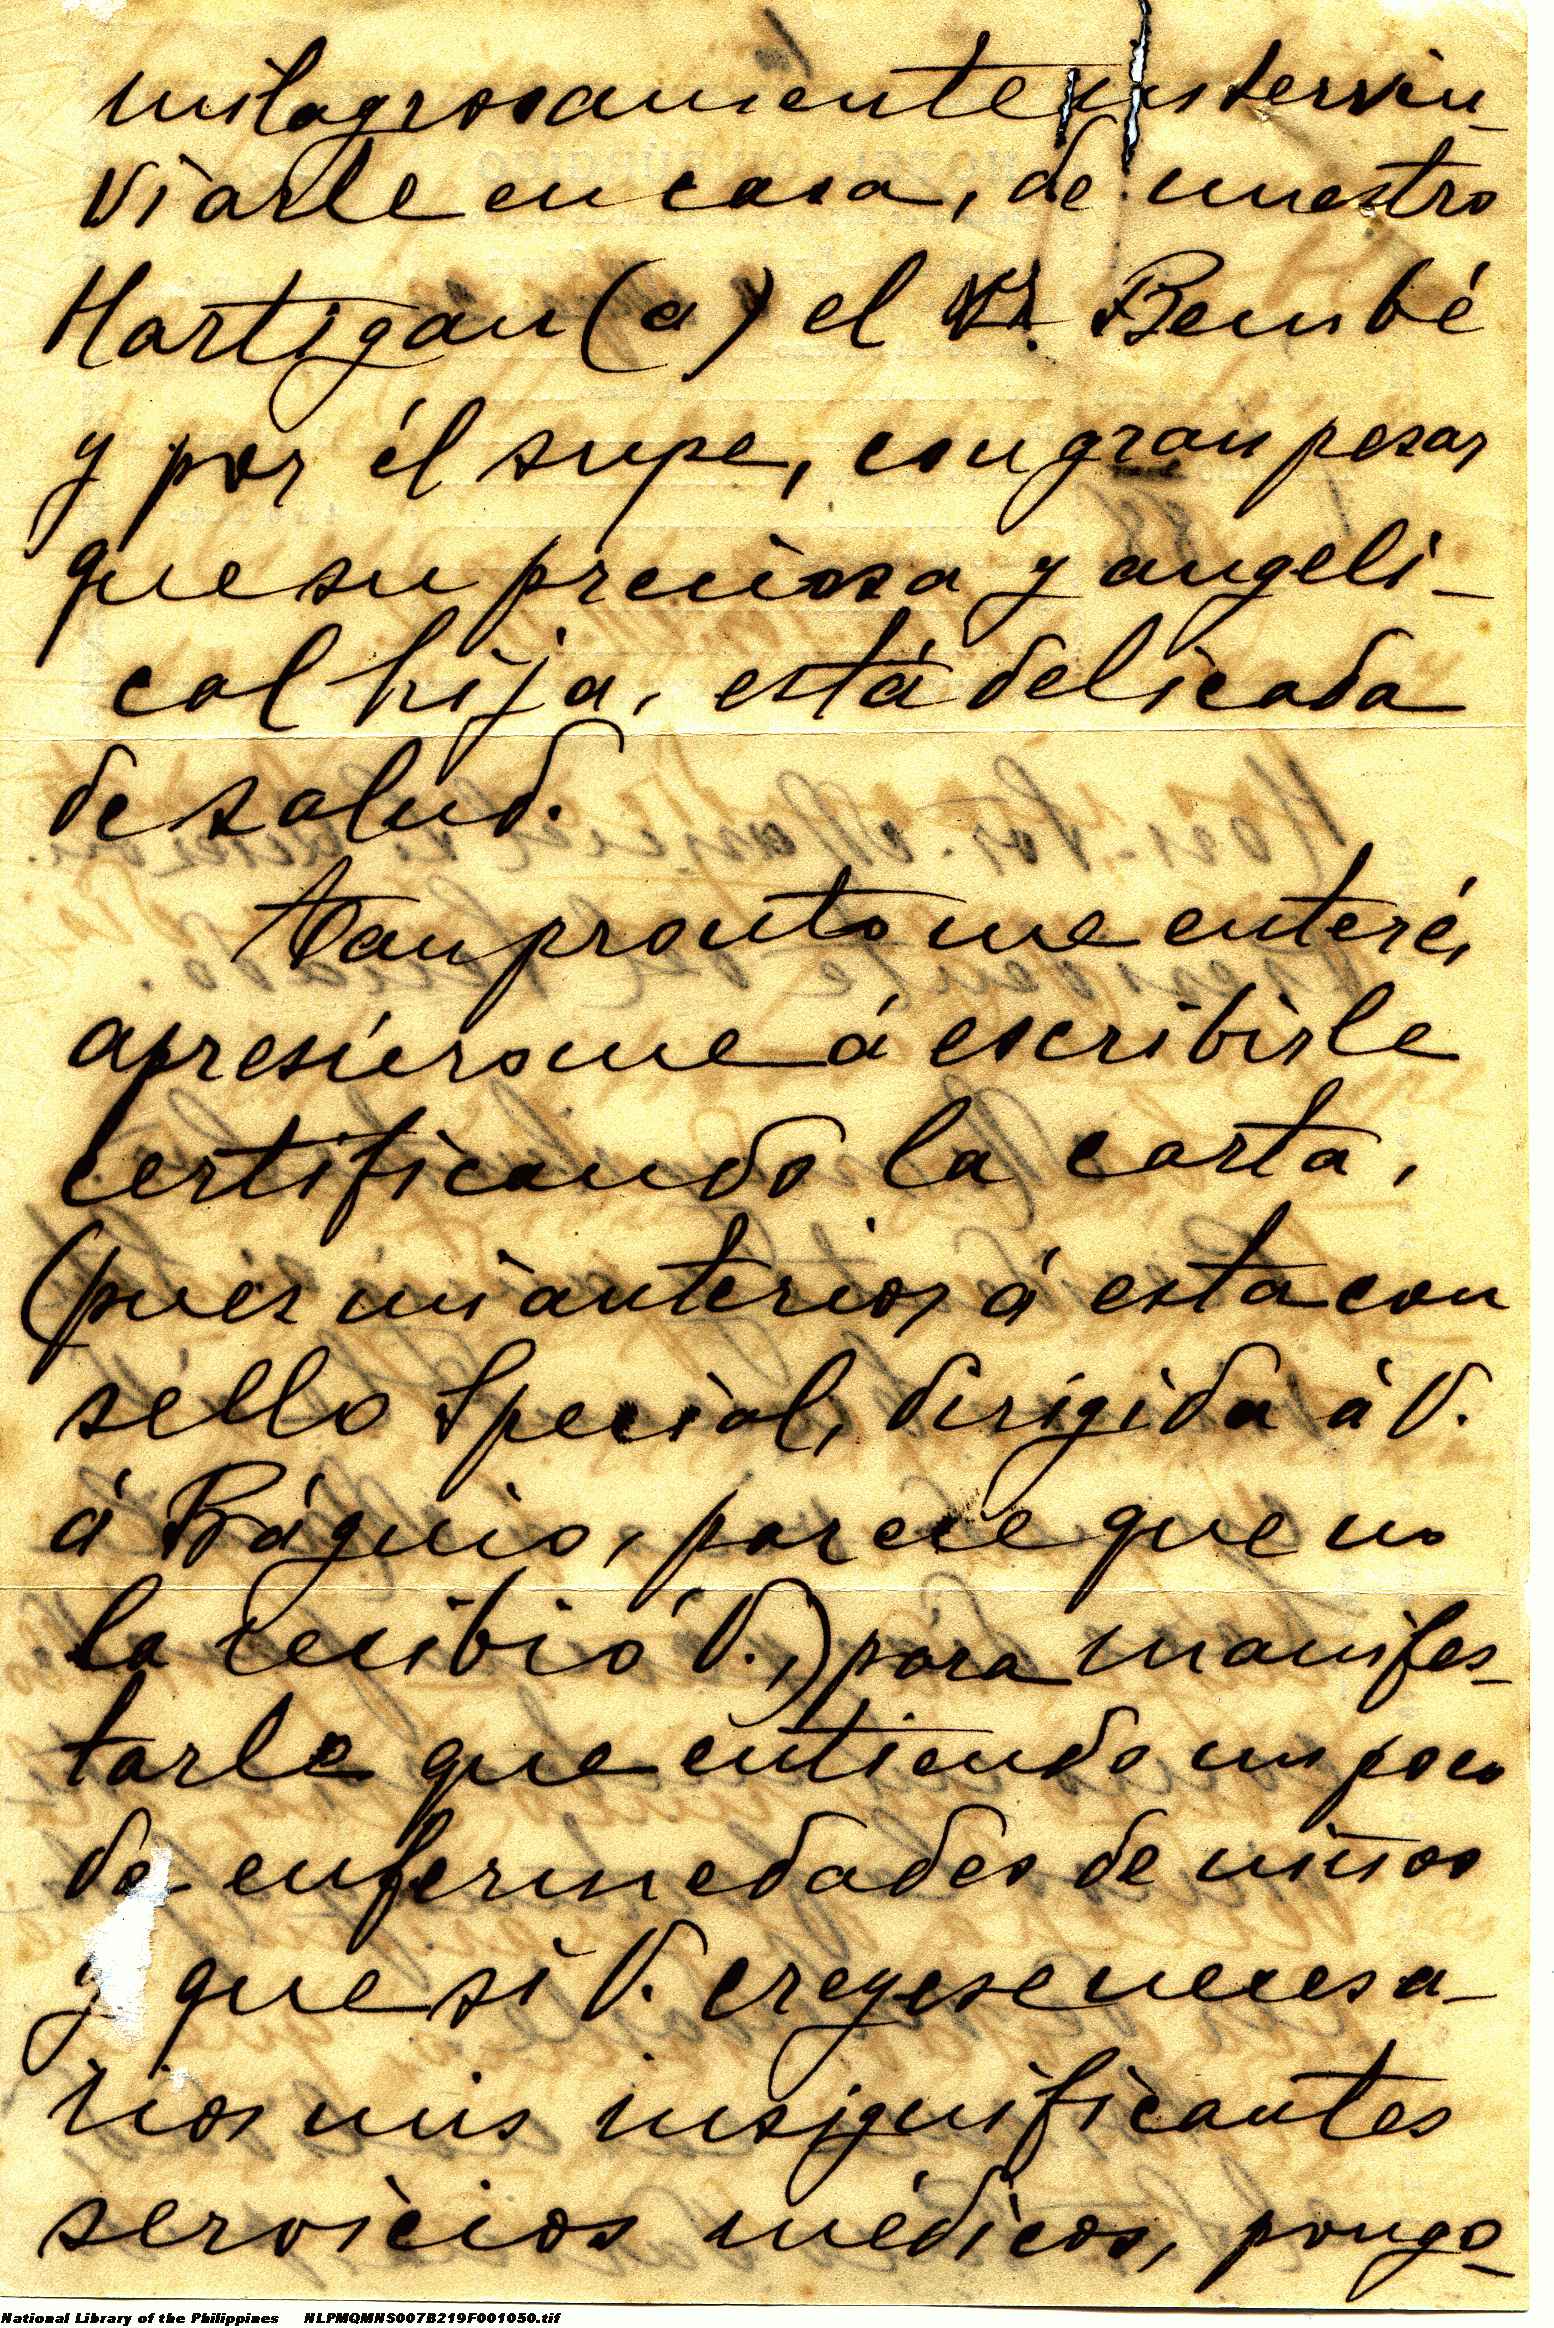 milagrosamente intervin-
viarle en casa, de nuestro
Hartigan (a) el Sr. Bembé
y por él supe, con gran pesar
que su preciosa y angeli-
cal hija, está delicada
de salud.
Tan pronto me enteré,
apresúrome á escribirle
certificando la carta,
(pues mi anterior á esta con
sello Special, dirigida á V.
á Báguio, parece que no
la recibió V.,) para manifes-
tarle que entiendo un poco
de enfermedades de niños
y que si V. creyese necesa-
rios mis insignificantes
servicios médicos, pongo-
National Library of the Philippines NLPMQMNS007B219F001050.tif